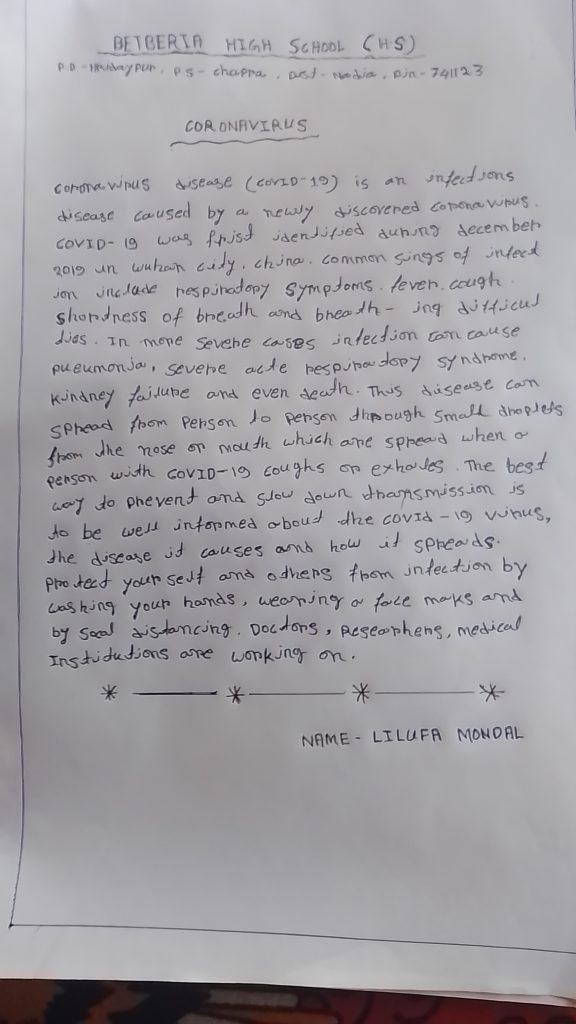 BETBERIA HIGH SCHOOL (H·S)
P.O - Hridaypur, P.S - chapra, Dist - Nadia, Pin - 741123
CORONAVIRUS
corona virus disease (COVID-19) is an infections
disease caused by a newly discovered corona virus.
COVID-19 was frist identified during december
2019 in wuhan city, china. common sings of infect
ion include respiratory symptoms. fever. cough.
shortness of breath and breath - ing difficul
ties. In more severe cases infection can cause
pueumonia, severe acte respiratory syndrome.
kindney failure and even death. This disease can
spread from person to person through small droplets
from the nose or mouth which are spread when a
person with COVID-19 coughs or exhales. The best
way to prevent and slow down transmission is
to be well informed about the COVID-19 virus,
the disease it causes and how it spreads.
protect your self and others from infection by
washing your hands, wearning a face maks and
by socal distancing. Doctors, Researhers, medical
Institutions are working on.
NAME - LILUFA MONDAL